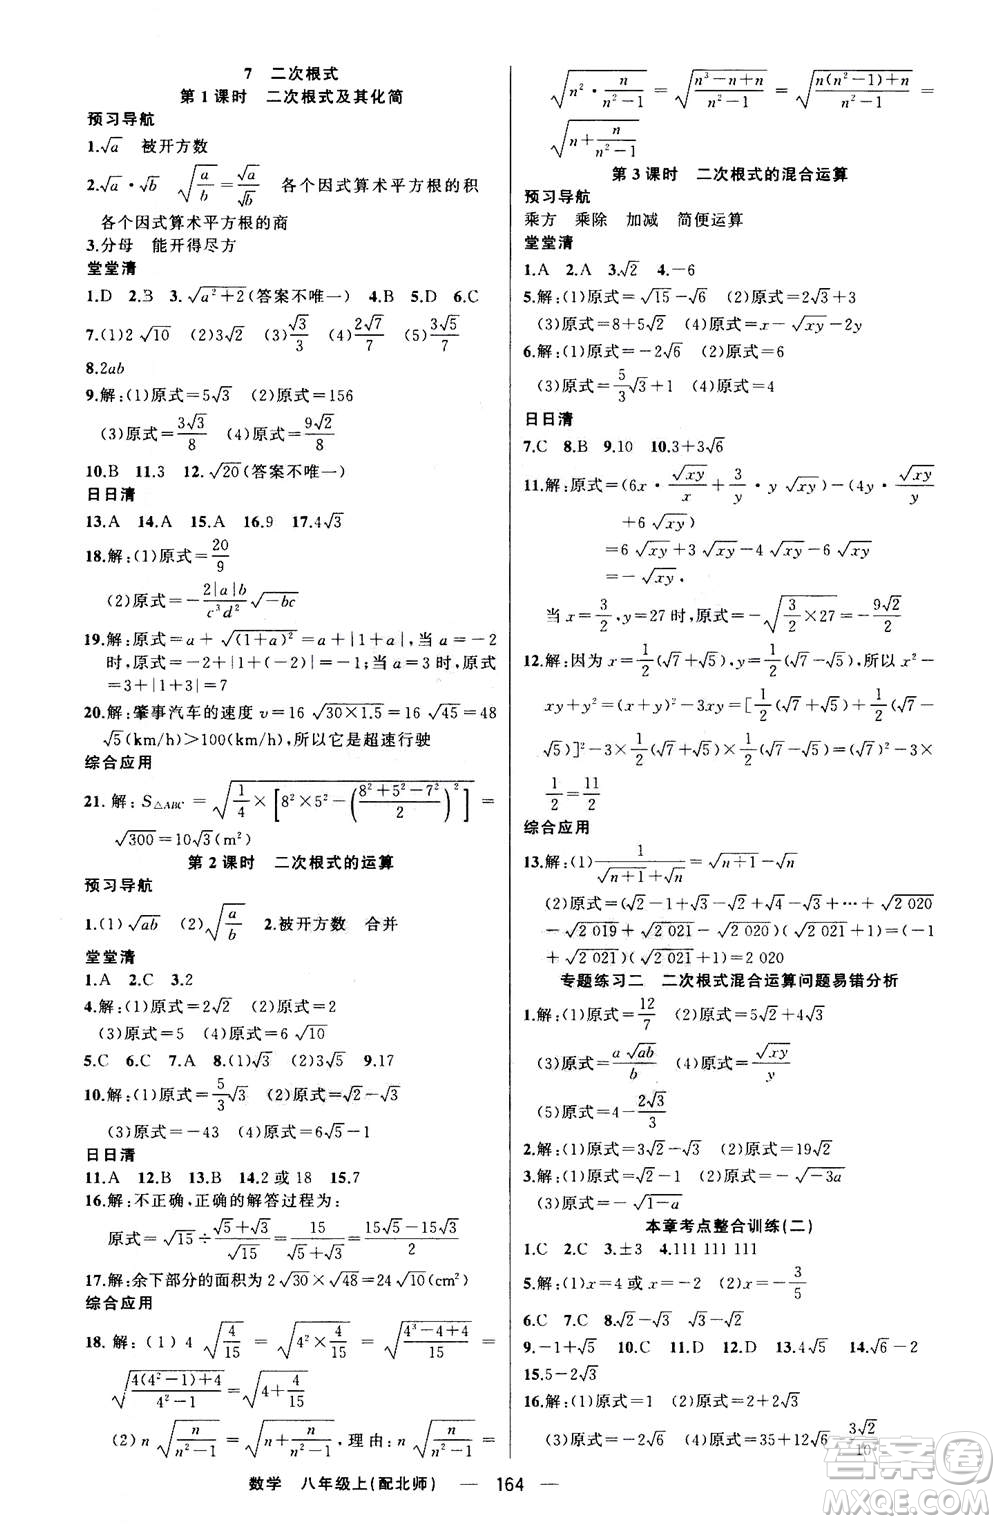 7 二次根式
第1课时 二次根式及其化简
预习导航
1.√a 被开方数
2.√a·√b √(a/b)=√a/√b 各个因式算术平方根的积
各个因式算术平方根的商
3.分母 能开得尽方
堂堂清
1.D 2.B 3.√(a²+2)(答案不唯一) 4.B 5.D 6.C
7.(1)2√10 (2)3√2 (3)√3/3 (4)2√7/7 (5)3√5/7
8.2ab
9.解:(1)原式=5√3 (2)原式=156
(3)原式=3√3/8 (4)原式=9√2/8
10.B 11.3 12.√20(答案不唯一)
日日清
13.A 14.A 15.A 16.9 17.4√3
18.解:(1)原式=20/9
(2)原式=-2|a|b/c³d² √-bc
19.解:原式=a+√(1+a)²=a+|1+a|,当a=-2
时,原式=-2+|1+(-2)|=-1;当a=3时,原式
=3+|1+3|=7
20.解:肇事汽车的速度v=16√30×1.5=16√45=48
√5(km/h)>100(km/h),所以它是超速行驶
综合应用
21.解:S△ABC=√(1/4×[8²×5²-((8²+5²-7²)/2)²])=
√300=10√3(m²)
第2课时 二次根式的运算
预习导航
1.(1)√ab (2)√(a/b) 2.被开方数 合并
堂堂清
1.A 2.C 3.2
4.解:(1)原式=2√2 (2)原式=2√3
(3)原式=5 (4)原式=6√10
5.C 6.C 7.A 8.(1)√3 (2)3√5 9.17
10.解:(1)原式=5/3√3 (2)原式=√2-√3
(3)原式=-43 (4)原式=6√5-1
日日清
11.A 12.B 13.B 14.2或18 15.7
16.解:不正确,正确的解答过程为:
原式=√15÷(√5+√3)/√15=15/(√5+√3)=(15√5-15√3)/2
17.解:余下部分的面积为2√30×√48=24√10(cm²)
综合应用
18.解:(1)4√(4/15)=√(4²×4/15)=√((4³-4+4)/15)=
√((4(4²-1)+4)/(4²-1))=√(4+4/15)
(2)n√(n/(n²-1))=√(n+n/(n²-1)),理由:n√(n/(n²-1))=
√(n²·n/(n²-1))=√((n³-n+n)/(n²-1))=√((n(n²-1)+n)/(n²-1))=
√(n+n/(n²-1))
第3课时 二次根式的混合运算
预习导航
乘方 乘除 加减 简便运算
堂堂清
1.A 2.A 3.√2 4.-6
5.解:(1)原式=√15-√6 (2)原式=3√2+3
(3)原式=8+5√2 (4)原式=x-√xy-2y
6.解:(1)原式=-2√6 (2)原式=6
(3)原式=5/3√3+1 (4)原式=4
日日清
7.C 8.B 9.10 10.3+3√6
11.解:原式=(6x·√xy/x+3/y·y√xy)-(4y·√xy/y
+6√xy)
=6√xy+3√xy-4√xy-6√xy
=-√xy,
当x=3/2,y=27时,原式=-√(3/2×27)=-9√2/2
12.解:因为x=1/2(√7+√5),y=1/2(√7-√5),所以x²-
xy+y²=(x+y)²-3xy=[1/2(√7+√5)+1/2(√7-
√5)]²-3×1/2(√7+√5)×1/2(√7-√5)=7-3×
1/2=11/2
综合应用
13.解:(1)1/(√n+1+√n)=√n+1-√n
(2)原式=(√2-1+√3-√2+√4-√3+…+√2 020
-√2 019+√2 021-√2 020)(1+√2 021)=(-1+
√2 021)(1+√2 021)=2 020
专题练习二 二次根式混合运算问题易错分析
1.解:(1)原式=12/7 (2)原式=5√2+4√3
(3)原式=a√ab/b (4)原式=√xy/y
(5)原式=4-2√3/3
2.解:(1)原式=3√2-√3 (2)原式=19√2
3.解:(1)原式=√2-1 (2)原式=-√-3a
(3)原式=-√1-a
本章考点整合训练(二)
1.C 2.C 3.±3 4.111 111 111
5.解:(1)x=4或x=-2 (2)x=-3/5
6.C 7.C 8.√2-√3 √3-√2
9.-1+√5 10.C 11.D 12.A 13.4√5 14.√6-2
15.5-2√3
16.解:(1)原式=1 (2)原式=2+2√3
(3)原式=-√6 (4)原式=35+12√6-3√2/10
数学 八年级上(配北师) — 164 —
答案圈
MXQE.COM